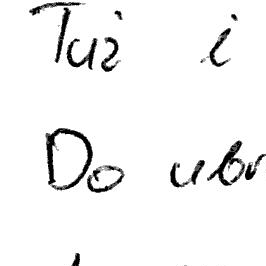 Tuż i
Do ubr